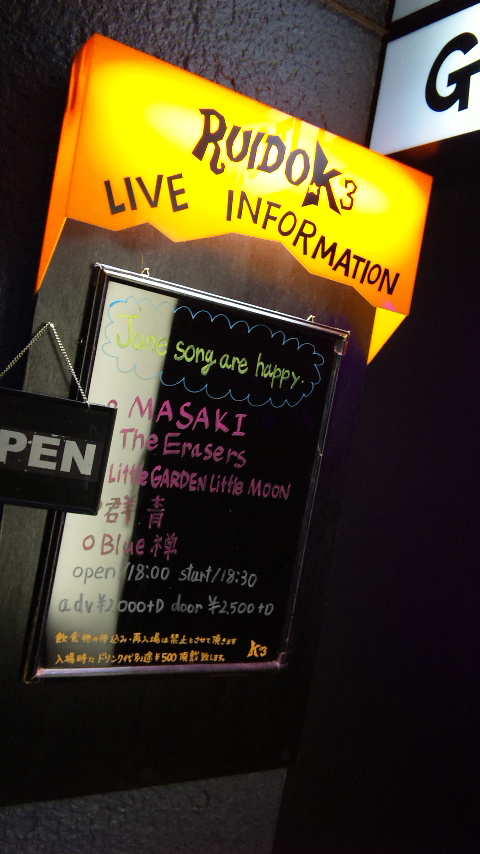 G
RUIDO K3
LIVE INFORMATION
June song are happy.
MASAKI
The Erasers
Little GARDEN Little MOON
群青
Blue 樽
open/18:00 start/18:30
adv¥2000+D door ¥2,500+D
飲食物の持込み・再入場は禁止とさせて頂きます
入場時にドリンク代別途¥500頂戴致します。
K3
PEN